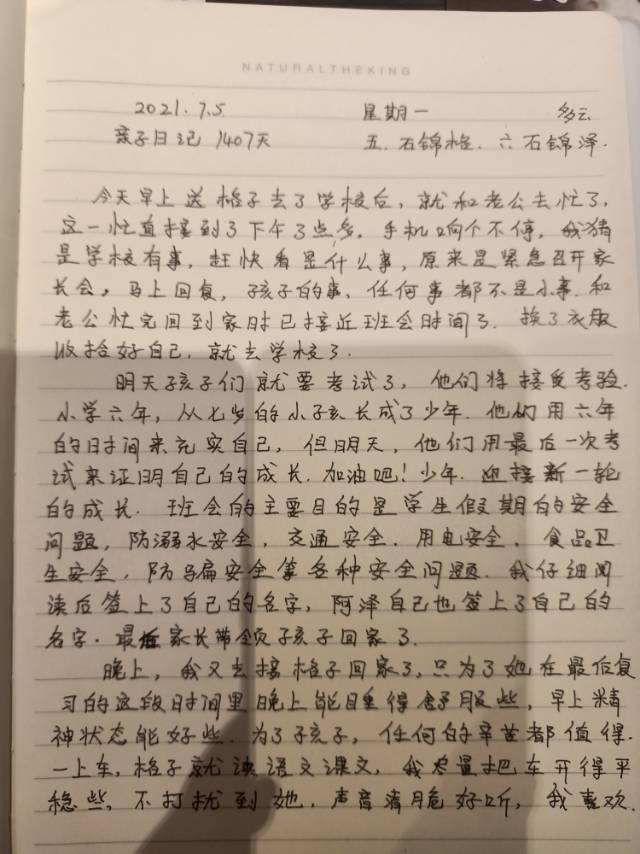 NATURALTHEKING
2021.7.5 星期一 多云
亲子日记 1407天 五.石锦格.六石锦泽.
今天早上送格子去了学校后,就和老公去忙了,
这一忙直接到了下午3点多.手机响个不停,我猜
是学校有事,赶快看是什么事,原来是紧急召开家
长会,马上回复,孩子的事、任何事都不是小事.和
老公忙完回到家时已接近班会时间了.换了衣服
收拾好自己,就去学校了.
明天孩子们就要考试了,他们将接受考验.
小学六年,从七岁的小孩长成了少年.他们用六年
的时间来充实自己,但明天,他们用最后一次考
试来证明自己的成长.加油吧!少年.迎接新一轮
的成长.班会的主要目的是学生假期的安全
问题,防溺水安全,交通安全.用电安全.食品卫
生安全,防骗安全等各种安全问题.我仔细阅
读后签上了自己的名字,阿泽自己也签上了自己的
名字.最后家长带领孩子回家了.
晚上,我又去接格子回家了,只为了她在最后复
习的这段时间里晚上能睡得舒服些,早上精
神状态能好些.为了孩子,任何的辛苦都值得.
一上车,格子就读语文课文,我尽量把车开得平
稳些,不打扰到她.声音清脆好听,我喜欢.